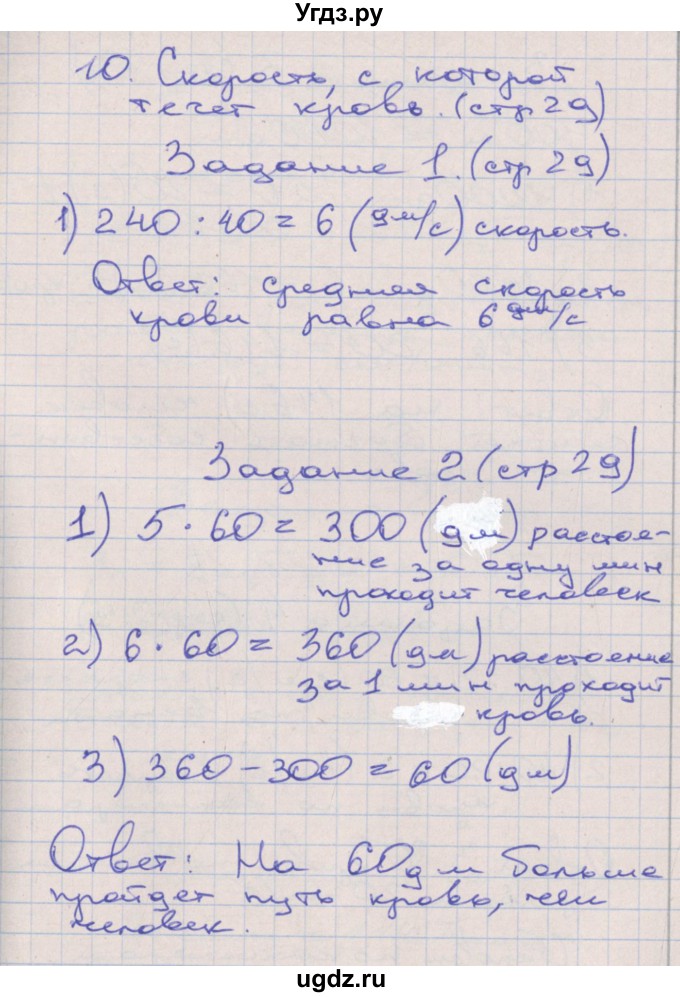 Угдз.ру
10. Скорость, с которой
течет кровь. (стр 29)
Задание 1. (стр 29)
1) 240 : 40 = 6 (дм/с) скорость.
Ответ: средняя скорость
крови равна 6 дм/с
Задание 2 (стр 29)
1) 5 · 60 = 300 (дм) расстоя-
ние за одну мин
проходит человек
2) 6 · 60 = 360 (дм) расстояние
за 1 мин проходит
кровь.
3) 360 - 300 = 60 (дм)
Ответ: На 60 дм больше
пройдет путь кровь, чем
человек.
ugdz.ru